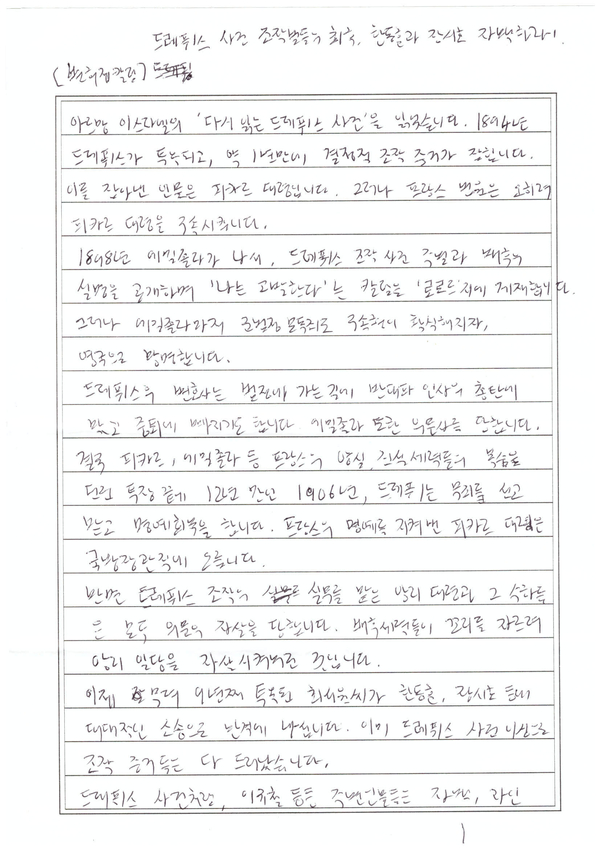 드레퓌스 사건 조작범들의 최후, 한동훈과 장시호 자백하라!
[변희재칼럼]
아르망 이스라엘의 '다시 읽는 드레퓌스 사건'을 읽었습니다. 1894년
드레퓌스가 투옥되고, 약 1년만에 결정적 조작 증거가 잡힙니다.
이를 잡아낸 인물은 피카르 대령입니다. 그러나 프랑스 법원은 오히려
피카르 대령을 구속시킵니다.
1898년 에밀졸라가 나서, 드레퓌스 조작 사건 주범과 배후의
실명을 공개하며 '나는 고발한다'는 칼럼을 '로로르'지에 게재합니다.
그러나 에밀졸라마저 군법정 모독죄로 구속형이 확실해지자,
영국으로 망명합니다.
드레퓌스측 변호사는 법정에 가는 길에 반대파 인사의 총탄에
맞고 중퇴에 빠지기도 합니다. 에밀졸라 또한 의문사를 당합니다.
결국 피카르, 에밀졸라 등 프랑스의 양심, 지식세력들의 목숨을
던진 투쟁 끝에 12년 만인 1906년, 드레퓌스는 무죄를 선고
받고 명예회복을 합니다. 프랑스의 명예를 지켜낸 피카르 대령은
국방장관직에 오릅니다.
반면 드레퓌스 조작의 실무를 맡은 앙리 대령과 그 수하들
은 모두 의문의 자살을 당합니다. 배후세력들이 꼬리를 자르려
앙리 일당을 자살시켜버린 것입니다.
이제 무려 9년째 투옥된 최서원씨가 한동훈, 장시호 등에
대대적인 소송으로 반격에 나섭니다. 이미 드레퓌스 사건 이상으로
조작 증거들은 다 드러났습니다.
드레퓌스 사건처럼, 이규철 등등 주변인물들은 자백,
1